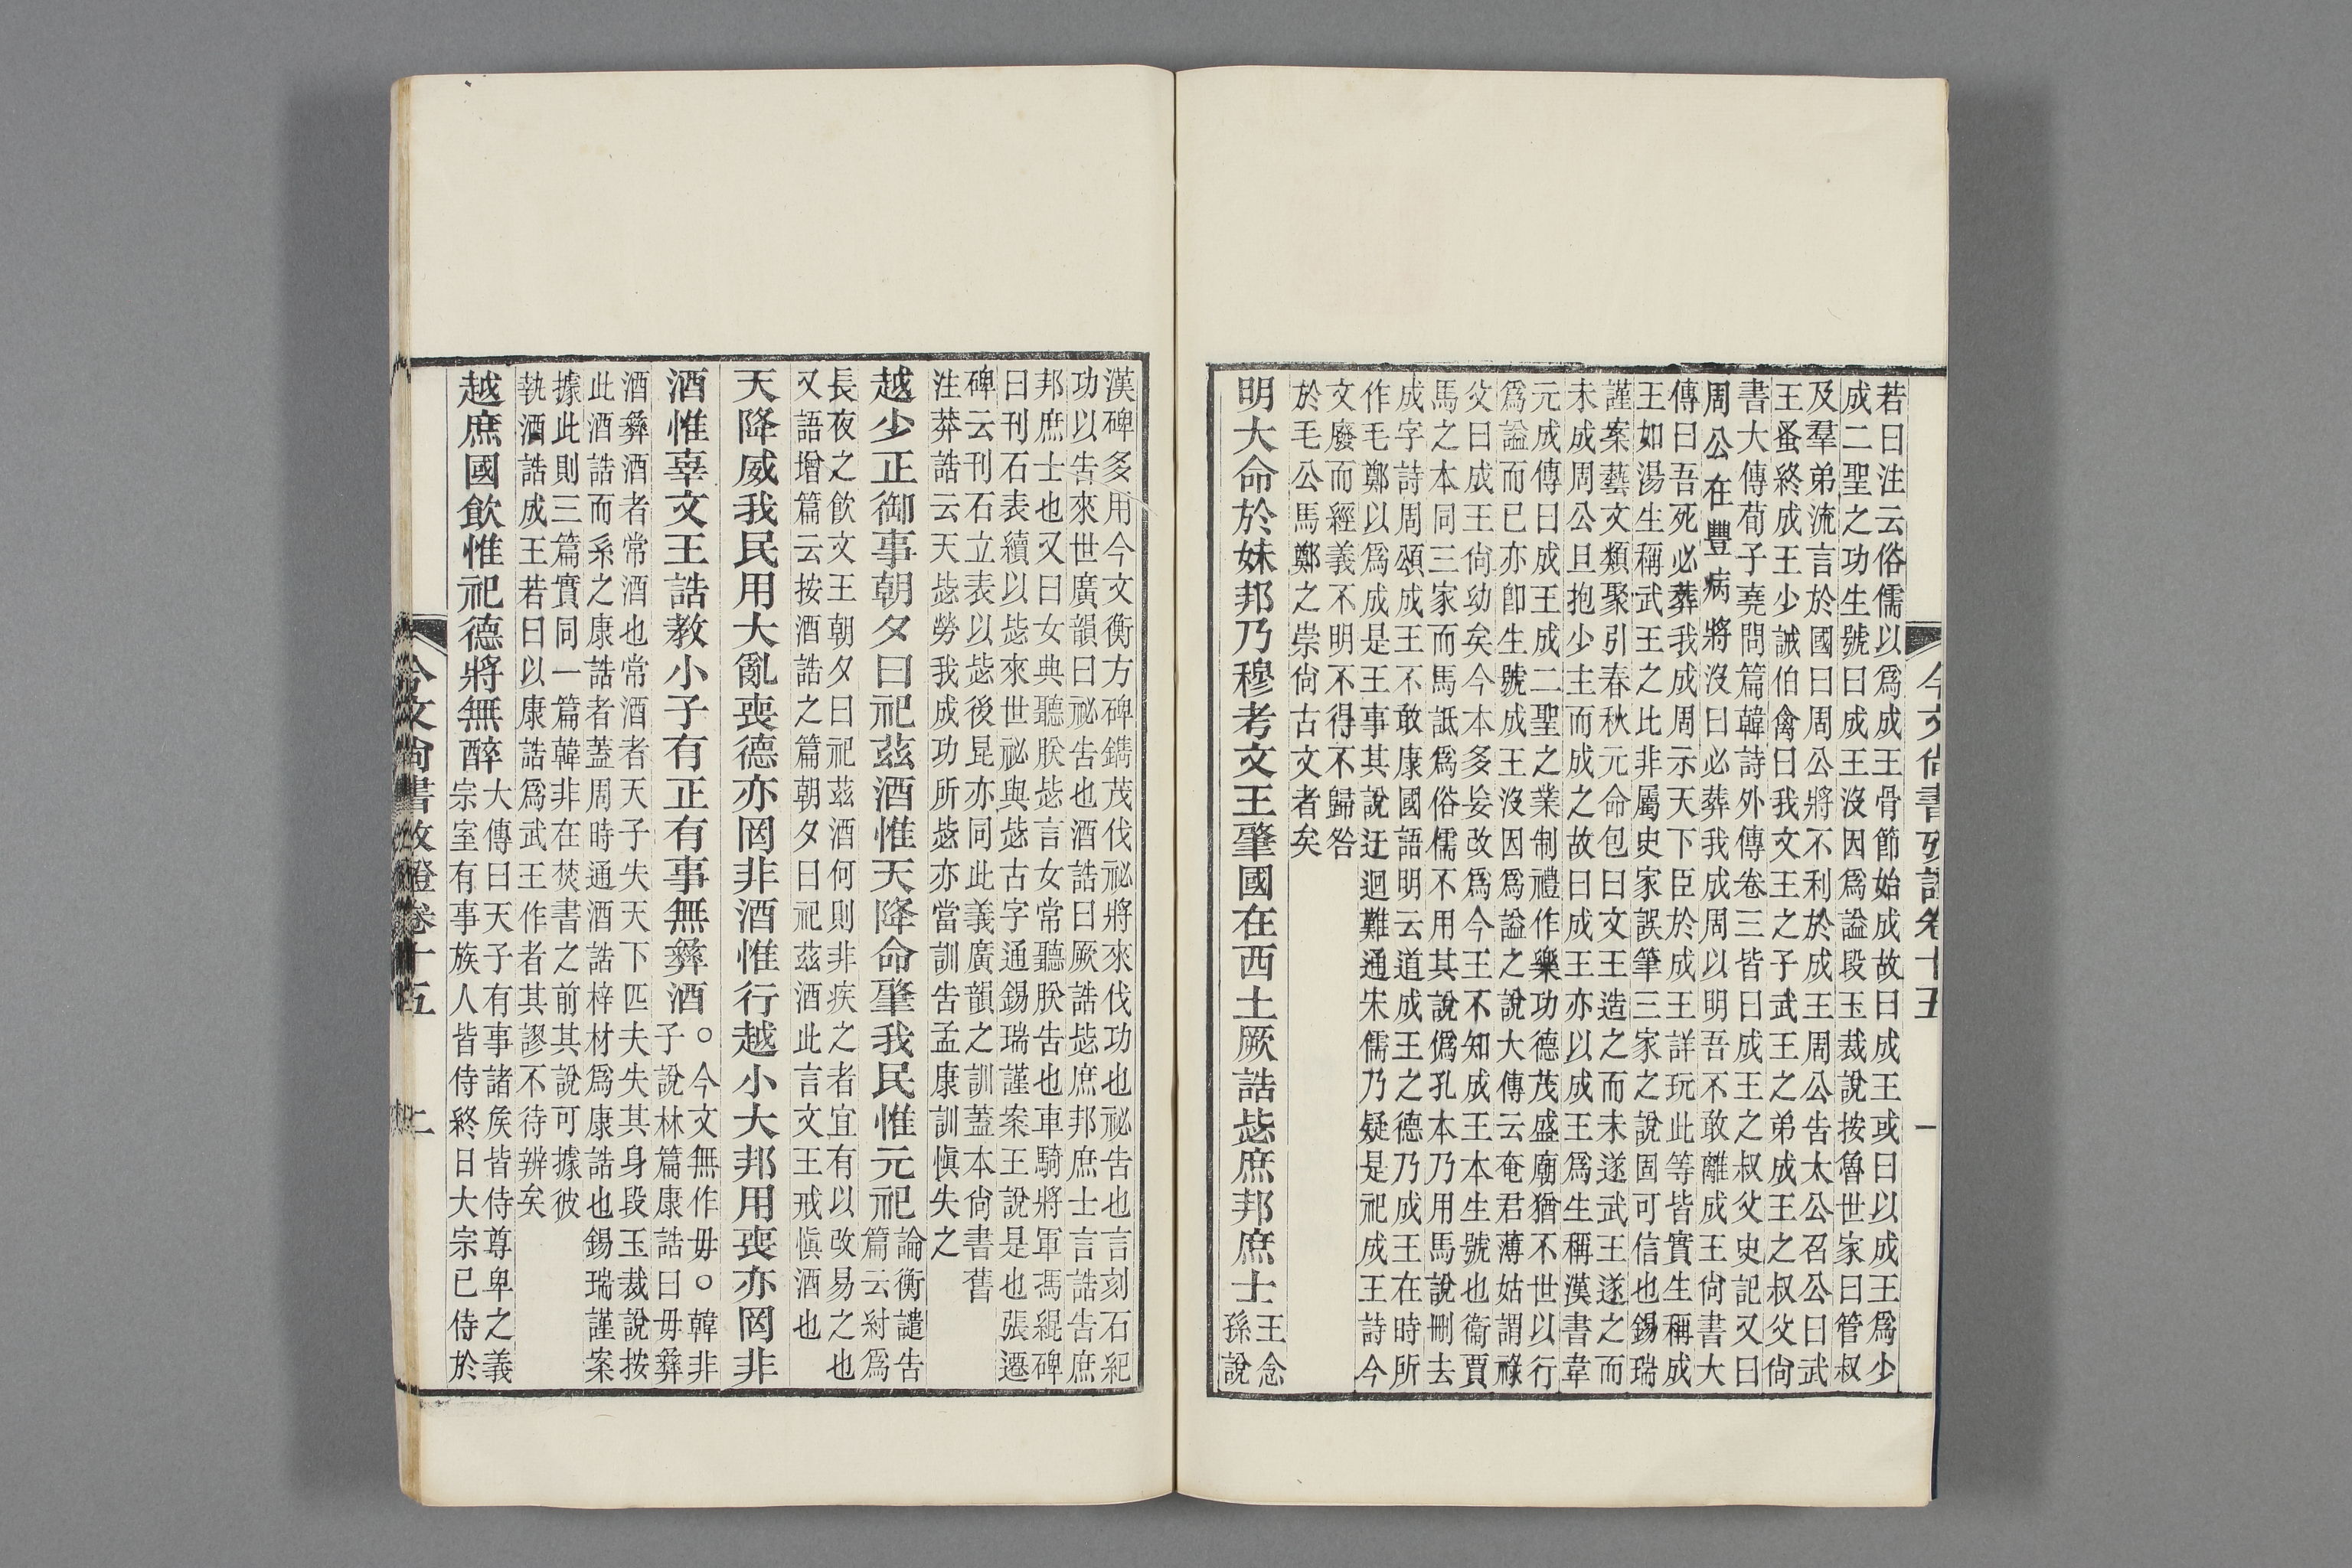 若曰注云俗儒以爲成王骨節始成故曰成王或曰以成王爲少
成二聖之功生號曰成王沒因爲謚段玉裁說按魯世家曰管叔
及羣弟流言於國曰周公將不利於成王周公告太公召公曰武
王蚤終成王少誡伯禽曰我文王之子武王之弟成王之叔父尙
書大傳荀子堯問篇韓詩外傳卷三皆曰成王之叔父史記又曰
周公在豐病將沒曰必葬我成周以明吾不敢離成王尙書大
傳曰吾死必葬我成周示天下臣於成王詳玩此等皆實生稱成
王如湯生稱武王之比非屬史家誤筆三家之說固可信也錫瑞
謹案藝文類聚引春秋元命包曰文王造之而未遂武王遂之而
未成周公旦抱少主而成之故曰成王亦以成王爲生稱漢書韋
元成傳曰成王成二聖之業制禮作樂功德茂盛廟猶不世以行
爲謚而已亦卽生號成王沒因爲謚之說大傳云奄君薄姑謂祿
父曰成王尙幼矣今本多妄改爲今王不知成王本生號也衞賈
馬之本同三家而馬詆爲俗儒不用其說僞孔本乃用馬說刪去
成字詩周頌成王不敢康國語明云道成王之德乃成王在時所
作毛鄭以爲成是王事其說迂迴難通宋儒乃疑是祀成王詩今
文廢而經義不明不得不歸咎
於毛公馬鄭之崇尙古文者矣
明大命於妹邦乃穆考文王肇國在西土厥誥毖庶邦庶士王念
孫說
今文尙書攷證卷十五
一
漢碑多用今文衡方碑鐫茂伐祕將來伐功也祕告也言刻石紀
功以告來世廣韻曰祕告也酒誥曰厥誥毖庶邦庶士言誥告庶
邦庶士也又曰女典聽朕毖言女常聽朕告也車騎將軍馮緄碑
曰刊石表續以毖來世祕與毖古字通錫瑞謹案王說是也張遷
碑云刊石立表以毖後昆亦同此義廣韻之訓蓋本尙書舊
注莽誥云天毖勞我成功所毖亦當訓告孟康訓愼失之
越少正御事朝夕曰祀茲酒惟天降命肇我民惟元祀論衡譴告
篇云紂爲
長夜之飲文王朝夕曰祀茲酒何則非疾之者宜有以改易之也
又語增篇云按酒誥之篇朝夕曰祀茲酒此言文王戒愼酒也
天降威我民用大亂喪德亦罔非酒惟行越小大邦用喪亦罔非
酒惟辜文王誥教小子有正有事無彝酒○今文無作毋○韓非
子說林篇康誥曰毋彝
酒彝酒者常酒也常酒者天子失天下匹夫失其身段玉裁說按
此酒誥而系之康誥者蓋周時通酒誥梓材爲康誥也錫瑞謹案
據此則三篇實同一篇韓非在焚書之前其說可據彼
執酒誥成王若曰以康誥爲武王作者其謬不待辨矣
越庶國飲惟祀德將無醉大傳曰天子有事諸侯皆侍尊卑之義
宗室有事族人皆侍終日大宗已侍於
今文尙書攷證卷十五